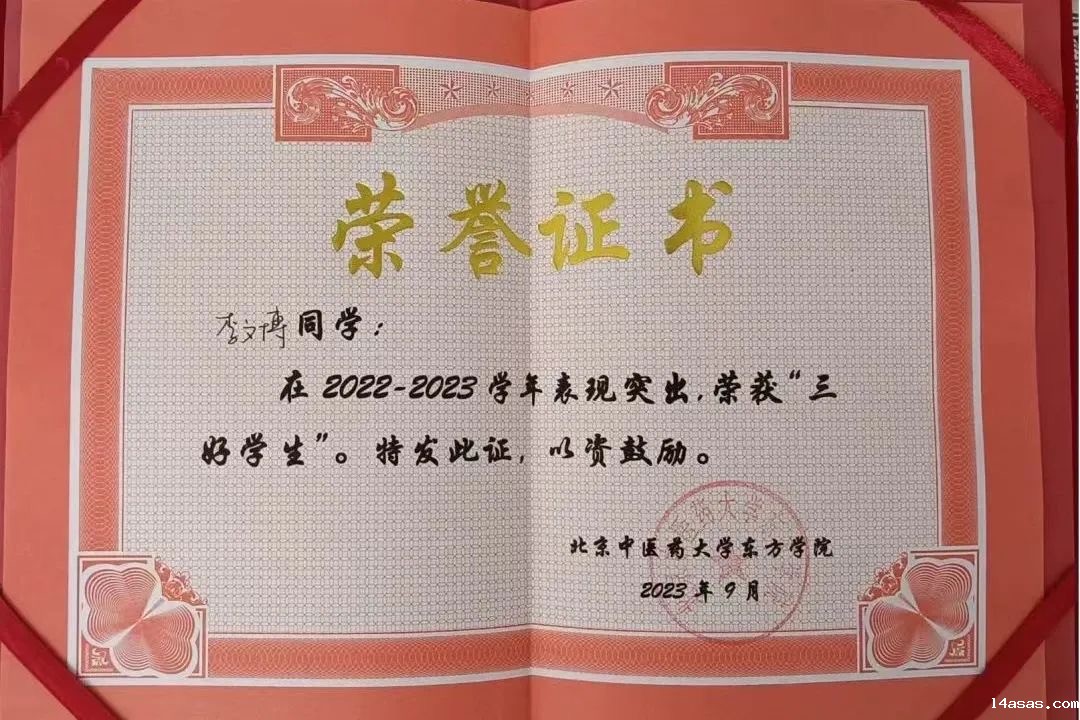 荣誉证书
李文博同学：
在2022-2023学年表现突出,荣获“三
好学生”。特发此证,以资鼓励。
北京中医药大学东方学院
2023年9月
14asas.com